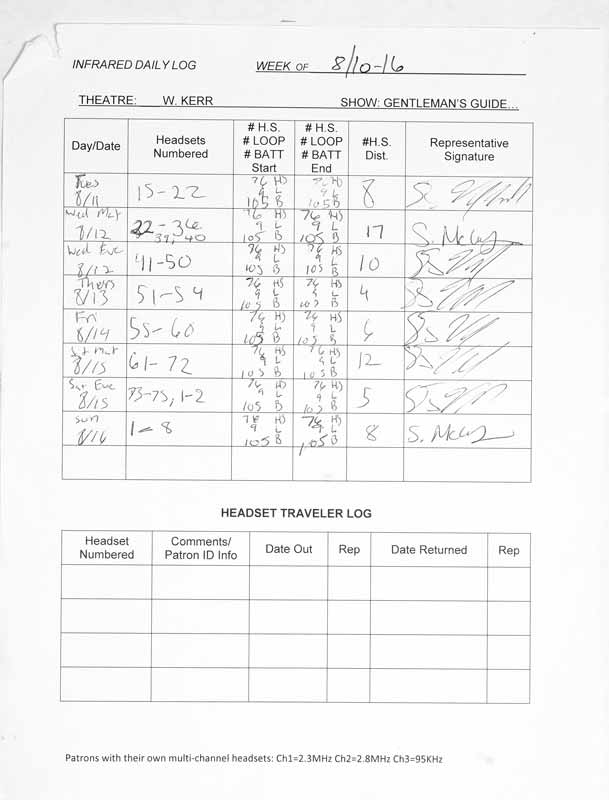 INFRARED DAILY LOG WEEK OF 8/10-16
THEATRE: W. KERR SHOW: GENTLEMAN'S GUIDE...
Day/Date Headsets Numbered # H.S. # LOOP # BATT Start # H.S. # LOOP # BATT End #H.S. Dist. Representative Signature
Tues 8/11 15-22 76 HS 9 L 105 B 76 HS 9 L 105 B 8
Wed Mat 8/12 22-36 39, 40 76 HS 9 L 105 B 76 HS 9 L 105 B 17
Wed Eve 8/12 41-50 76 HS 9 L 105 B 76 HS 9 L 105 B 10
Thurs 8/13 51-54 76 HS 9 L 105 B 76 HS 9 L 105 B 4
Fri 8/14 55-60 76 HS 9 L 105 B 76 HS 9 L 105 B 6
Sat Mat 8/15 61-72 76 HS 9 L 105 B 76 HS 9 L 105 B 12
Sat Eve 8/15 73-75, 1-2 76 HS 9 L 105 B 76 HS 9 L 105 B 5
Sun 8/16 1-8 76 HS 9 L 105 B 76 HS 9 L 105 B 8
HEADSET TRAVELER LOG
Headset Numbered Comments/ Patron ID Info Date Out Rep Date Returned Rep
Patrons with their own multi-channel headsets: Ch1=2.3MHz Ch2=2.8MHz Ch3=95KHz